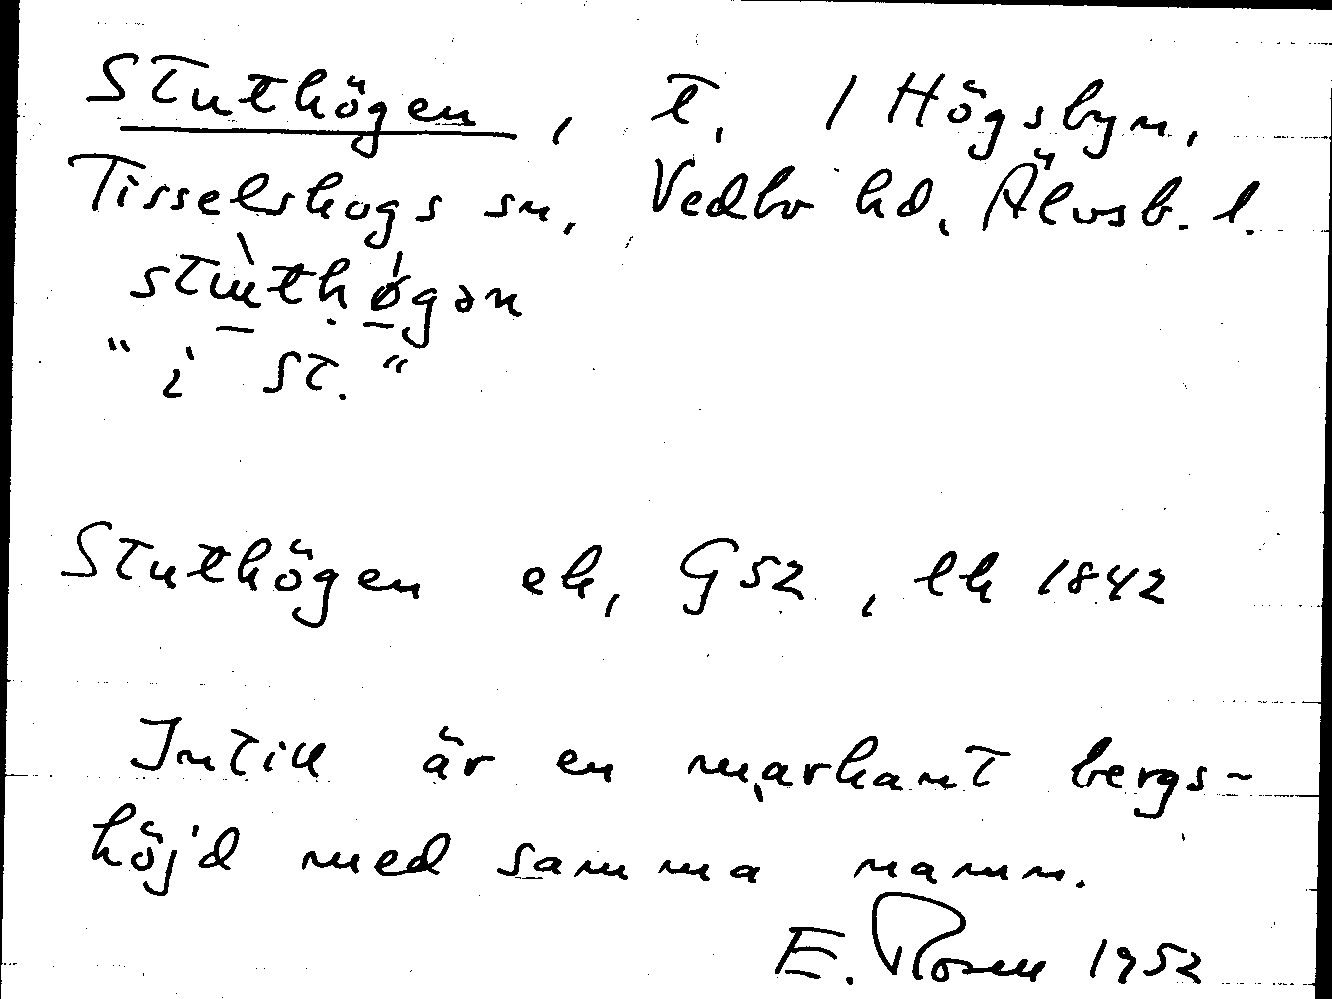 Stuthögen, t. / Högsbyn,
Tisselskogs sn, Vedbo hd, Älvsb. l.
stùthǿgən
"i St."
Stuthögen ek, G52, lk 1842
Intill är en markant bergs-
höjd med samma namn.
E. Rosell 1952